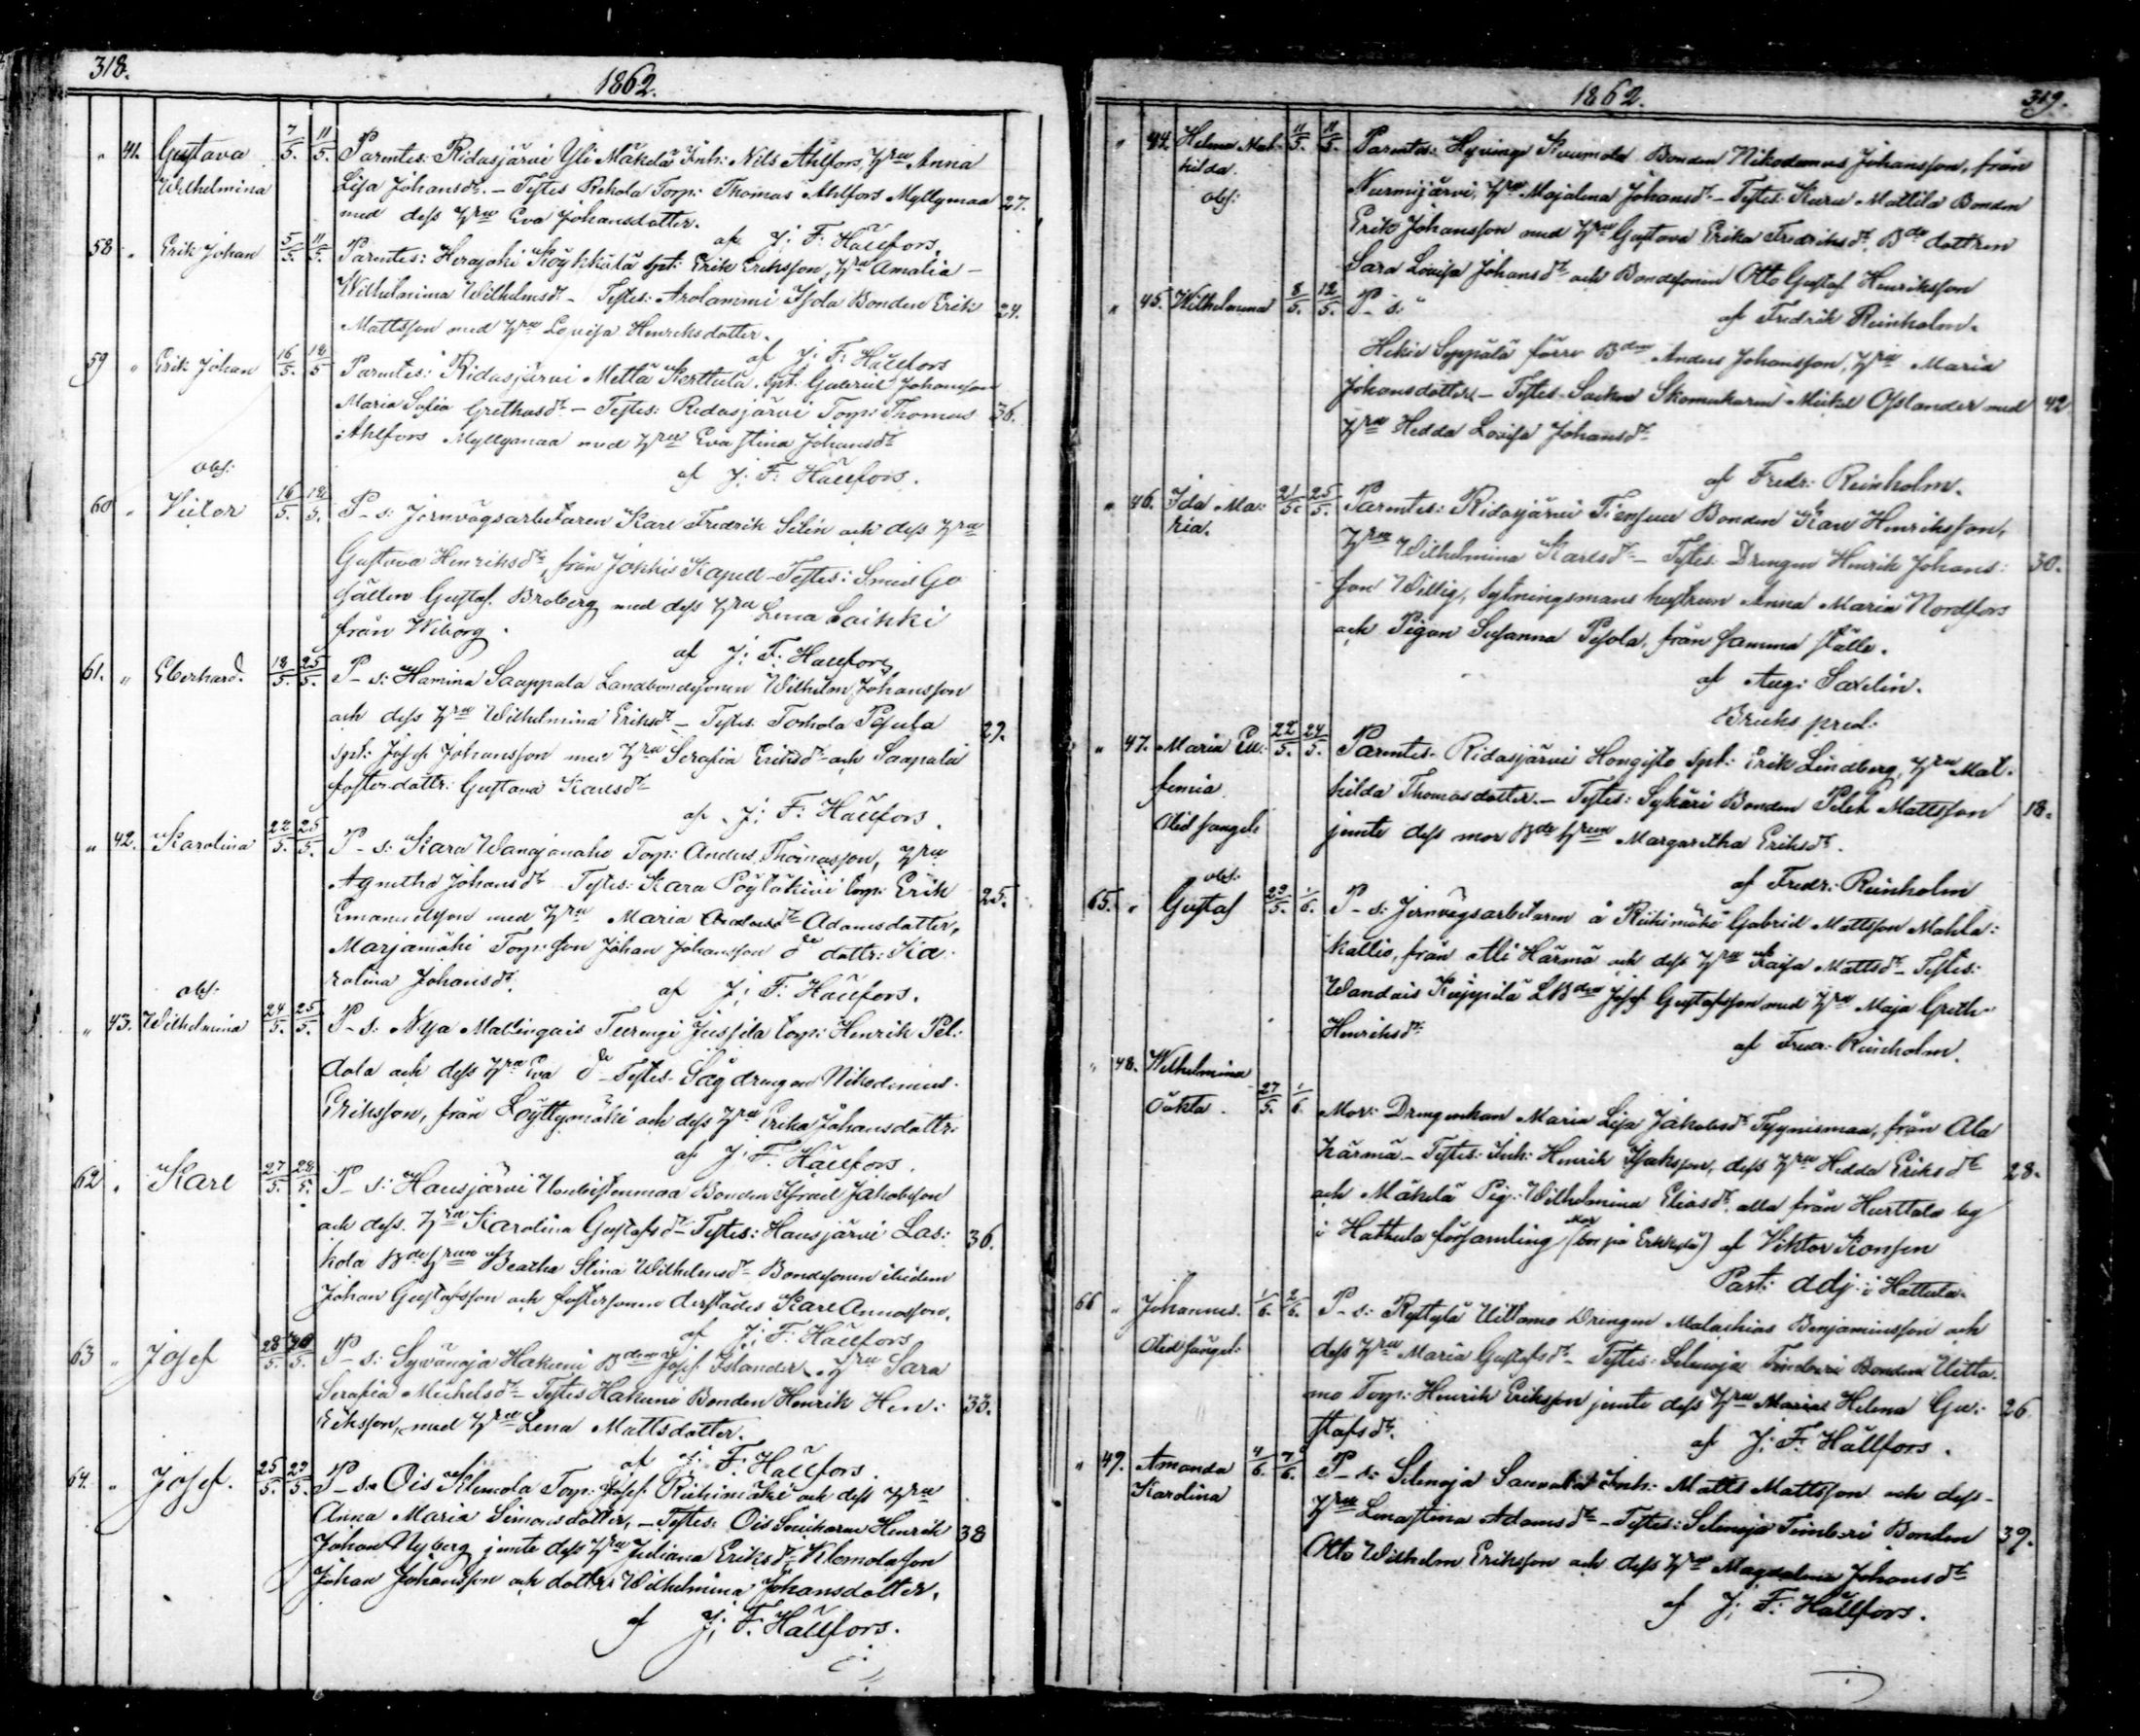 318.
1862.
" 41. Gustava 7/5. 11/5. Parentes: Ridasjärvi Yli Mäkelä Inh: Nils Ahlfors, Hru Anna
Wilhelmina Lisa Johansdr. – Testes Rekola Torp: Thomas Ahlfors Myllymaa 27.
med dess Hru Eva Johansdotter.
af J: F: Hällfors.
58 " Erik Johan 5/5. 11/5. Parentes: Herajoki Spt: Erik Eriksson, Hru Amalia –
Wilhelmina Wilhelmsdr – Testes: Arolammi Isola Bonden Erik 24.
Mattsson med Hru Lovisa Henriksdotter.
af J: F: Hällfors
59 " Erik Johan 16/5. 18/5 Parentes: Ridasjärvi Mettä Kerttula Spt: Gabriel Johansson
Maria Sofia Grethasdr – Testes: Ridasjärvi Torp: Thomas 36.
Ahlfors Myllymaa med Hru Eva Stina Johansdr
af J: F: Hällfors.
obs:
60 " Victor 16/5. 18/5. P_s: Jernvägsarbetaren Karl Fredrik Selin och dess Hru
Gustava Henriksdr, från Jokkis Kapell – Testes: Smeds Ge
sällen Gustaf Broberg med dess Hru Lena Laihki
från Wiborg.
af J: F: Hällfors
61. " Eberhard. 18/5. 25/5. P_s: Hamina Saappala Landbondesonen Wilhelm Johansson
och dess Hru Wilhelmina Eriksdr – Testes: Torhola Pesula 29.
Spt: Josef Johansson med Hru Serafia Eriksdr och Saapala
fosterdottr: Gustava Karlsdr
af J: F: Hällfors.
" 42. Karolina 22/5. 25/5. P_s: Kara Wanajanaho Torp: Anders Thomasson, Hru
Agnetha Johansdr Testes: Kara Torp: Erik 25.
Emanuelsson med Hru Maria Adamsdotter,
Marjamäki Torp: son Johan Johansson do dottr: Ka:
rolina Johansdr.
af J: F: Hällfors.
obs:
" 43. Wilhelmina 24/5. 25/5. P_s: Nya Mallingais Terengi Jussila Torp: Henrik Pel:
dola och dess Hru Eva do – Testes: Sågdrengen Nikodemus
Eriksson, från Löyttymäki och dess Hru Erika Johansdottr:
af J: F: Hällfors.
62 " Karl 27/5. 28/5. P_s: Hausjärvi Bonden Israel Jakobsson
och dess Hru Karolina Gustafsdr – Testes: Hausjärvi Las: 36.
kola Bde Hrun Beatha Stina Wilhelmsdr Bondesonen ibidem
Johan Gustafsson och fostersonen derstädes Karl Annosson.
af J: F: Hällfors
63 " Josef 28/5. P_s: Syvänoja Hakuni Bden Josef Islander, Hru Sara
Serafia Michelsdr – Testes Hakuni Bonden Henrik Hen: 33.
riksson, med Hru Lena Mattsdotter.
af J: F: Hällfors.
64. " Josef. 25/5. 29/5. P_s: Ois Klemola Torp: Josef Riihimäki och dess Hru
Anna Maria Simonsdotter, – Testes: Ois Henrik 38
Johan Nyberg jemte dess Hru Juliana Eriksdr Klemola son
Johan Johansson och dottr: Wilhelmina Johansdotter.
af J: F: Hällfors.
1862.
319.
" 44. Helena Mat- 11/5. 11/5. Parentes: Hyvinge Kuumola Bonden Nikodemus Johansson, från
hilda. Nurmijärvi, Hru Majalena Johansdr – Testes: Mattila Bonden
obs: Erik Johansson med Hru Gustava Erika Fredriksdr, Bde dottren
Sara Lovisa Johansdr och Bondesonen Otto Gustaf Henriksson
af Fredrik Reinholm.
" 45. Wilhelmina 8/5. 12/5. P_s:
Hikie Seppälä förre Bden Anders Johansson, Hru Maria
Johansdotter – Testes: Skomakaren Mickel Oslander med 42
Hru Hedda Lovisa Johansdr
af Fredr: Reinholm.
" 46. Ida Ma: 21/5. 25/5. Parentes: Ridasjärvi Bonden Karl Henriksson,
ria. Hru Wilhelmina Karlsdr – Testes: Drengen Henrik Johans: 30.
son Willig, Sytningsmans hustrun Anna Maria Nordfors
och Pigan Susanna Pesola, från samma ställe.
af Aug: Saxelin.
Bruks pred:
" 47. Maria Eu: 22/5. 24/5. Parentes: Ridasjärvi Hongisto Spt: Erik Lindberg, Hru Mat:
femia hilda Thomasdotter. – Testes: Sykäri Bonden Petter Mattsson 18.
jemte dess mor Bde Hrun Margaretha Eriksdr.
af Fredr: Reinholm
obs:
65. " Gustaf 29/5. 1/6. P_s: Jernvägsarbetaren å Riihimäki Gabriel Mattsson Mahla:
kallio, från Ali Härmä och dess Hru Kaisa Mattsdr – Testes:
LBden Josef Gustafsson med Hru Maja Greth
Henriksdr
af Fredr: Reinholm.
" 48. Wilhelmina
27/5. 1/6. Mor: Drengenkan Maria Lisa Jakobsdr Tyynismaa, från Ala
Härmä – Testes: Inh: Henrik Isaksson, dess Hru Hedda Eriksdr 28.
och Mäkelä Pig: Wilhelmina Eliasdr, alla från Hurttala by
i Hattula församling (Mor bor på Erkkylä) af Viktor Konsen
Past: adj: i Hattula
66 " Johannes. 1/6. 2/6. P_s: Ryttylä Uittamo Drengen Malachias Benjaminsson och
dess Hru Maria Gustafsdr – Testes: Selenoja Uitta
mo Torp: Henrik Eriksson jemte dess Hru Helena Gu: 26
stafsdr.
af J: F: Hällfors.
" 49. Amanda 4/6. 7/6. P_s: Selenoja Inh: Matts Mattsson och dess
Karolina Hru Lena Stina Adamsdr – Testes: Selenoja Bonden 39.
Otto Wilhelm Eriksson och dess Hru Magdalena Johansdr
af J: F: Hällfors.